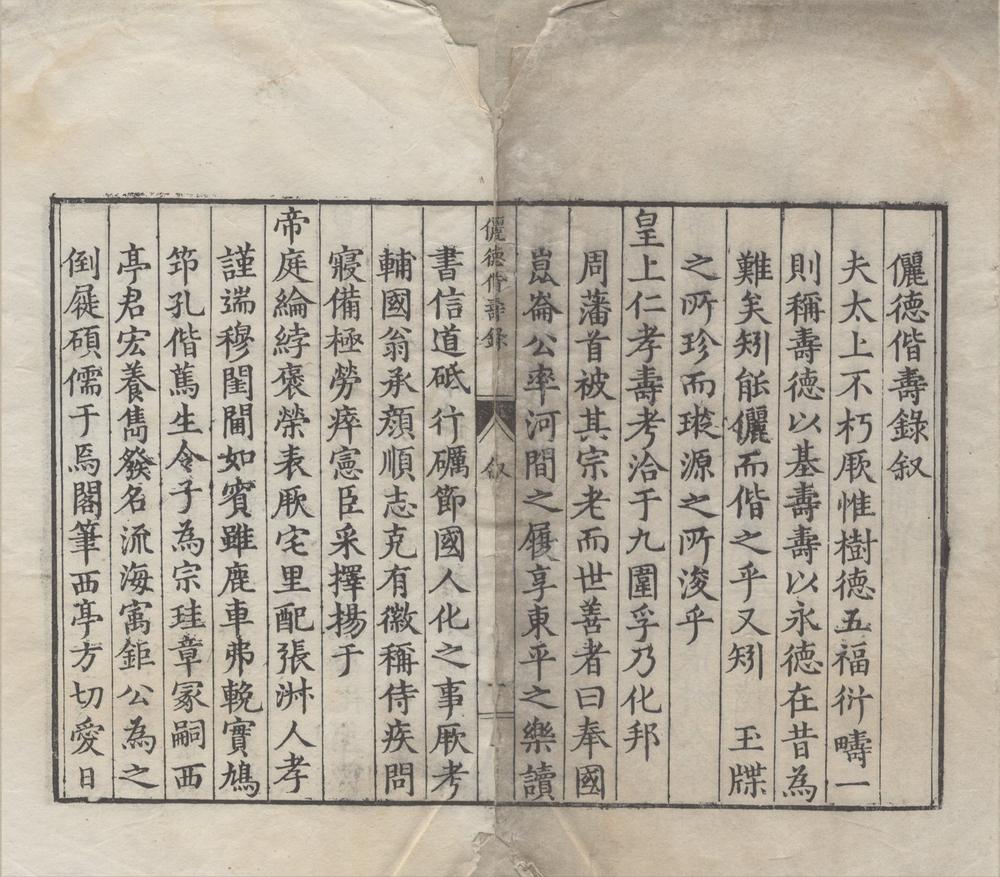 儷德偕壽錄叙
夫太上不朽厥惟樹德五福衍疇一
則稱壽德以基壽壽以永德在昔為
難矣矧能儷而偕之乎又矧 玉牒
之所珍而璇源之所浚乎
皇上仁孝壽考洽于九圍孚乃化邦
周藩首被其宗老而世善者曰奉國
崑崙公率河間之履享東平之樂讀
儷德偕壽錄 叙 一
書信道砥行礪節國人化之事厥考
輔國翁承顔順志克有徽稱侍疾問
寢備極勞瘁憲臣采擇揚于
帝庭綸綍褒榮表厥宅里配張淋人孝
謹端穆閨閫如賓雖鹿車弗輓實鳩
笻孔偕蔿生令子為宗珪章冢嗣西
亭君宏養雋發名流海寓鉅公為之
倒屣碩儒于焉閣筆西亭方切愛日